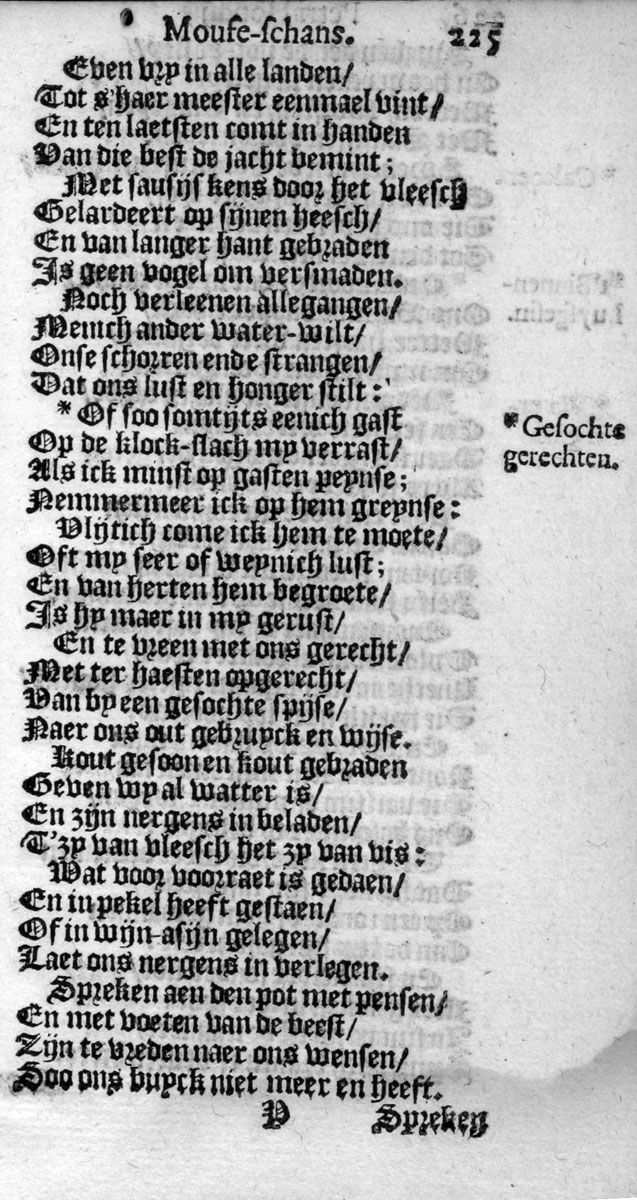 Mouse-schans. 225
Even vry in alle landen/
Tot s'haer meester eenmael vint/
En ten laetsten comt in handen
Van die best de jacht bemint;
Met sausijskens door het vleesch
Gelardeert op sijnen heesch/
En van langer hant gebraden
Is geen vogel om versmaden.
Noch verleenen allegangen/
Menich ander water-wilt/
Onse schorren ende strangen/
Dat ons lust en honger stilt:
* Of soo somtijts eenich gast
Op de klock-slach my verrast/
Als ick minst op gasten peynse;
Nemmermeer ick op hem greynse:
Vlijtich come ick hem te moete/
Oft my seer of weynich lust;
En van herten hem begroete/
Is hy maer in my gerust/
En te vreen met ons gerecht/
Met ter haesten opgerecht/
Van by een gesochte spijse/
Naer ons out gebruyck en wijse.
Kout gesoon en kout gebraden
Geven wy al watter is/
En zijn nergens in beladen/
T'zy van vleesch het zy van vis:
Wat voor voorraet is gedaen/
En in pekel heeft gestaen/
Of in wijn-asijn gelegen/
Laet ons nergens in verlegen.
Spreken aen den pot met pensen/
En met voeten van de beest/
Zijn te vreden naer ons wensen/
Soo ons buyck niet meer en heeft.
P Spreken
* Gesochte
gerechten.